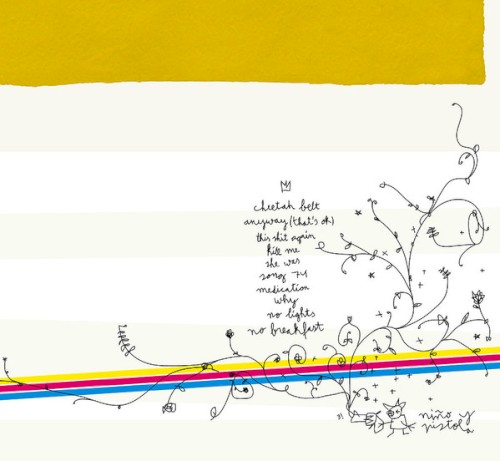 cheetah belt
anyway (that's ok)
this shit again
kill me
she was
song 74
medication
why
no lights
no breakfast
niño y
pistola